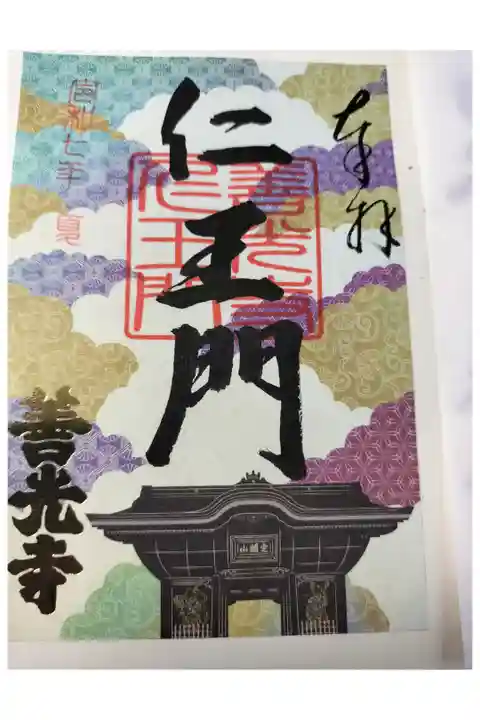 奉拝
仁王門
善光寺
仁王門
令和七年 夏
善光寺
定額山